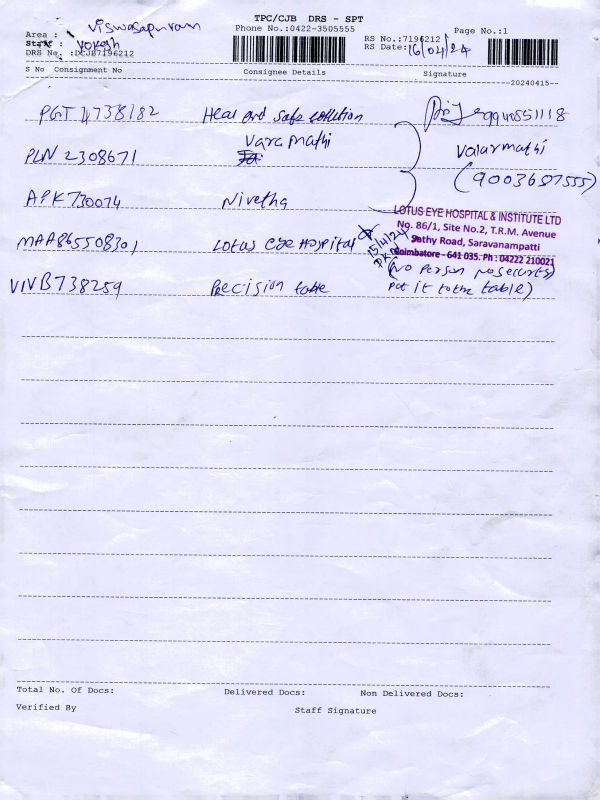 TPC/CJB DRS - SPT
Area : Viswasapuram
Phone No.:0422-3505555
Page No.:1
Staff : Yokesh
RS No.:7196212
DRS No. :DCJB7196212
RS Date:16/04/24
S No Consignment No Consignee Details Signature
--20240415--
PGT 4738182 Heal and safe sollution 9940551118
PLN 2308671 Varamathi Valarmathi
(9003687555)
APK 730074 Nivetha
LOTUS EYE HOSPITAL & INSTITUTE LTD
No. 86/1, Site No.2, T.R.M. Avenue
MAA865508301 Lotus eye Hospital 15/4/24 Sathy Road, Saravanampatti
Coimbatore - 641 035. Ph : 04222 210021
(No person no security
VIVB738259 Precision table put it to the table)
Total No. Of Docs: Delivered Docs: Non Delivered Docs:
Verified By Staff Signature